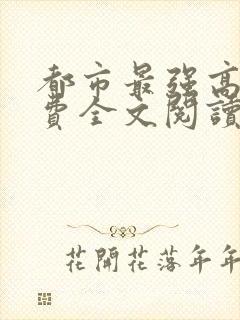 都市最强高
費全文閱讀
花開花落年年